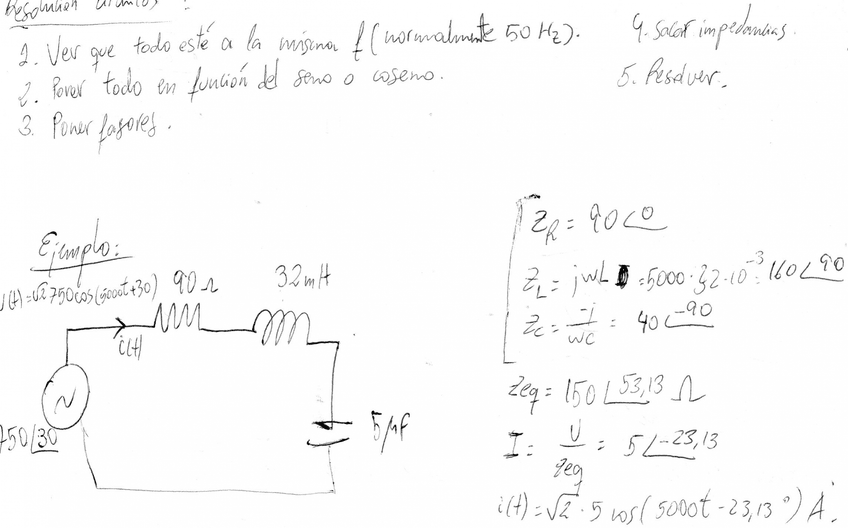 Resolución circuitos:
1. Ver que todo esté a la misma f (normalmente 50 Hz).
2. Poner todo en función del seno o coseno.
3. Poner fasores.
4. Sacar impedancias.
5. Resolver.
Ejemplo:
u(t)=√2 750 cos(5000t+30)
90 Ω
32mH
i(t)
750∠30
5μF
Z_R = 90∠0
Z_L = jwL = 5000·32·10^-3 = 160∠90
Z_C = -j/wc = 40∠-90
Zeq = 150∠53,13 Ω
I = U/Zeq = 5∠-23,13
i(t) = √2 · 5 cos(5000t - 23,13°) A.